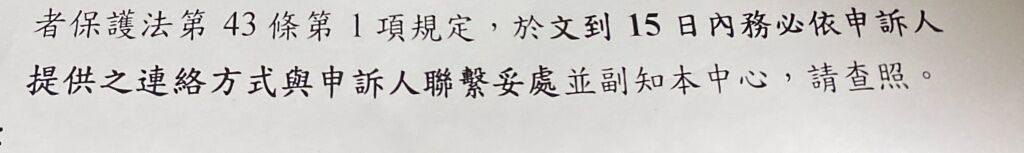 者保護法第 43 條第 1 項規定，於文到 15 日內務必依申訴人
提供之連絡方式與申訴人聯繫妥處並副知本中心，請查照。